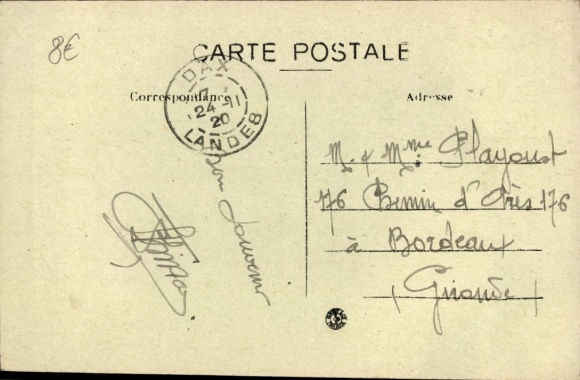 8€
CARTE POSTALE
Correspondance
Adresse
DAX
24-11
20
LANDES
Bon Souvenir
M. & Mme Playoust
176 Chemin d'Arès 176
à Bordeaux
(Gironde)